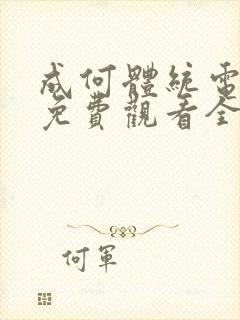 成何體統電
免費觀看全
何軍